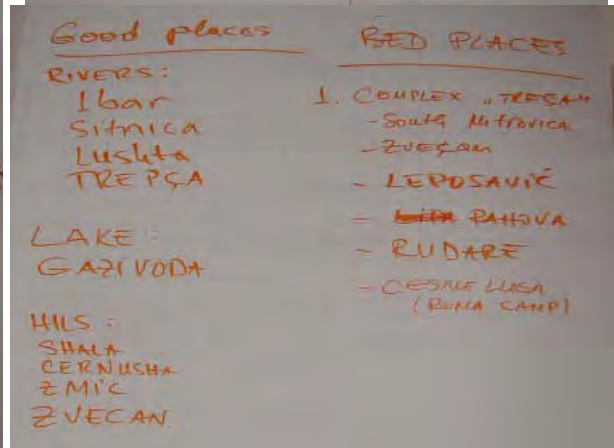 Good places
RIVERS:
Ibar
Sitnica
Lushta
TREPÇA
LAKE:
GAZIVODA
HILS:
SHALA
CERNUSHA
ZMIC
ZVECAN
BED PLACES
1. COMPLEX „TREPÇA"
- South Mitrovica
- ZVEÇAM
- LEPOSAVIĆ
- RAHOVA
- RUDARE
- CESME LUGA
(ROMA CAMP)